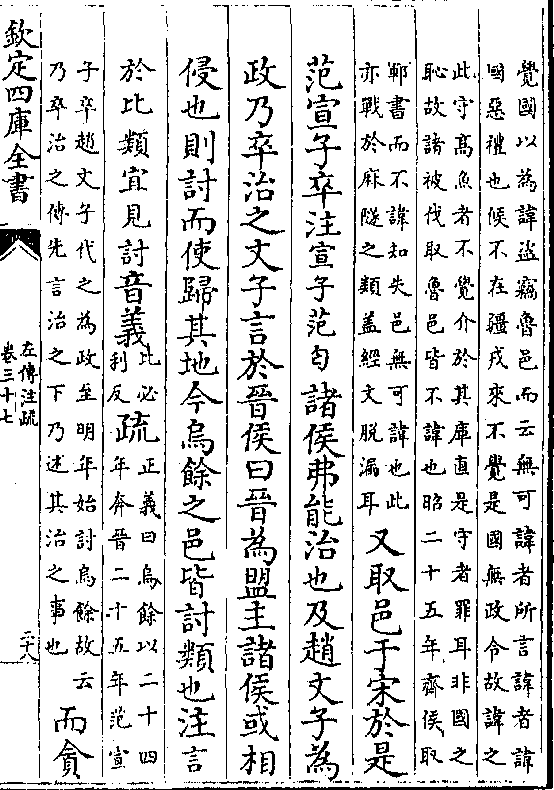 覺國以為諱盜竊魯邑而云無可諱者所言諱者諱
國惡禮也候不在疆戎來不覺是國無政令故諱之
此守高魚者不覺介於其庫直是守者罪耳非國之
恥故諸被伐取魯邑皆不諱也昭二十五年齊侯取
鄆書而不諱知失邑無可諱也此
亦戰於麻隧之類盖經文脫漏耳
又取邑于宋於是
范宣子卒注宣子范匄諸侯弗能治也及趙文子為
政乃卒治之文子言於晉侯曰晉為盟主諸侯或相
侵也則討而使歸其地今烏餘之邑皆討類也注言
於比類宜見討音義
比必
利反
疏
正義曰烏餘以二十四
年奔晉二十五年范宣
子卒趙文子代之為政至明年始討烏餘故云
乃卒治之傳先言治之下乃述其治之事也
而貪
欽定四庫全書
左傳注疏
卷三十七
二十八